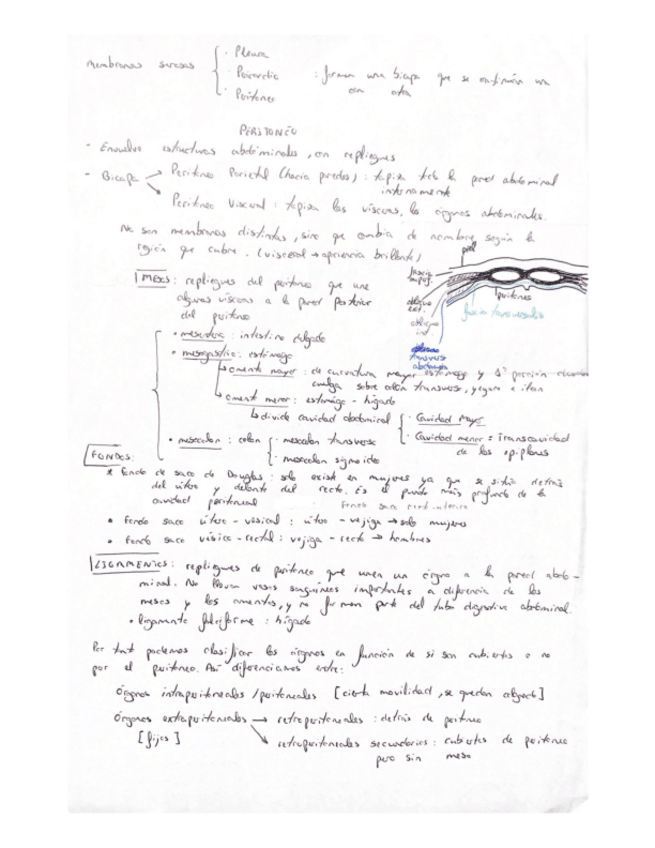 · Pleura
membranas serosas · Pericardio : forman una bicapa que se continúan una
· Peritoneo con otra
PERITONEO
- Envuelve estructuras abdominales, con repliegues
- Bicapa → Peritoneo Parietal (hacia paredes) : tapiza toda la pared abdominal
internamente
→ Peritoneo Visceral : tapiza las vísceras, los órganos abdominales.
No son membranas distintas, sino que cambia de nombre según la
región que cubre. (visceral → apariencia brillante)
piel
fascia superf.
oblicuo ext.
oblicuo int.
transverso abdomen
peritoneo
fascia transversalis
MESOS: repliegues del peritoneo que une
algunas vísceras a la pared posterior
del peritoneo
• mesenterio : intestino delgado
• mesogastrio : estómago
→ omento mayor : de curvatura mayor estómago y 1ª porción
cuelga sobre colon transverso, yeyuno e íleon
→ omento menor : estómago - hígado
↳ divide cavidad abdominal · Cavidad Mayor
· Cavidad menor = Transcavidad
de los epiplones
• mesocolon : colon · mesocolon transverso
· mesocolon sigmoideo
FONDOS:
* fondo de saco de Douglas : solo existe en mujeres ya que se sitúa detrás
del útero y delante del recto. Es el punto más profundo de la
cavidad peritoneal
• Fondo saco útero - vesical : útero - vejiga → solo mujeres
• Fondo saco vésico - rectal : vejiga - recto → hombres
LIGAMENTOS: repliegues de peritoneo que unen un órgano a la pared abdo-
minal. No llevan vasos sanguíneos importantes a diferencia de los
mesos y los omentos, y no forman parte del tubo digestivo abdominal.
• ligamento falciforme : hígado
Por tanto podemos clasificar los órganos en función de si son cubiertos o no
por el peritoneo. Así diferenciamos entre:
Órganos intraperitoneales / peritoneales [cierta movilidad, se quedan
Órganos extraperitoneales → retroperitoneales : detrás de peritoneo
[fijos] → retroperitoneales secundarios : cubiertos de peritoneo
pero sin meso